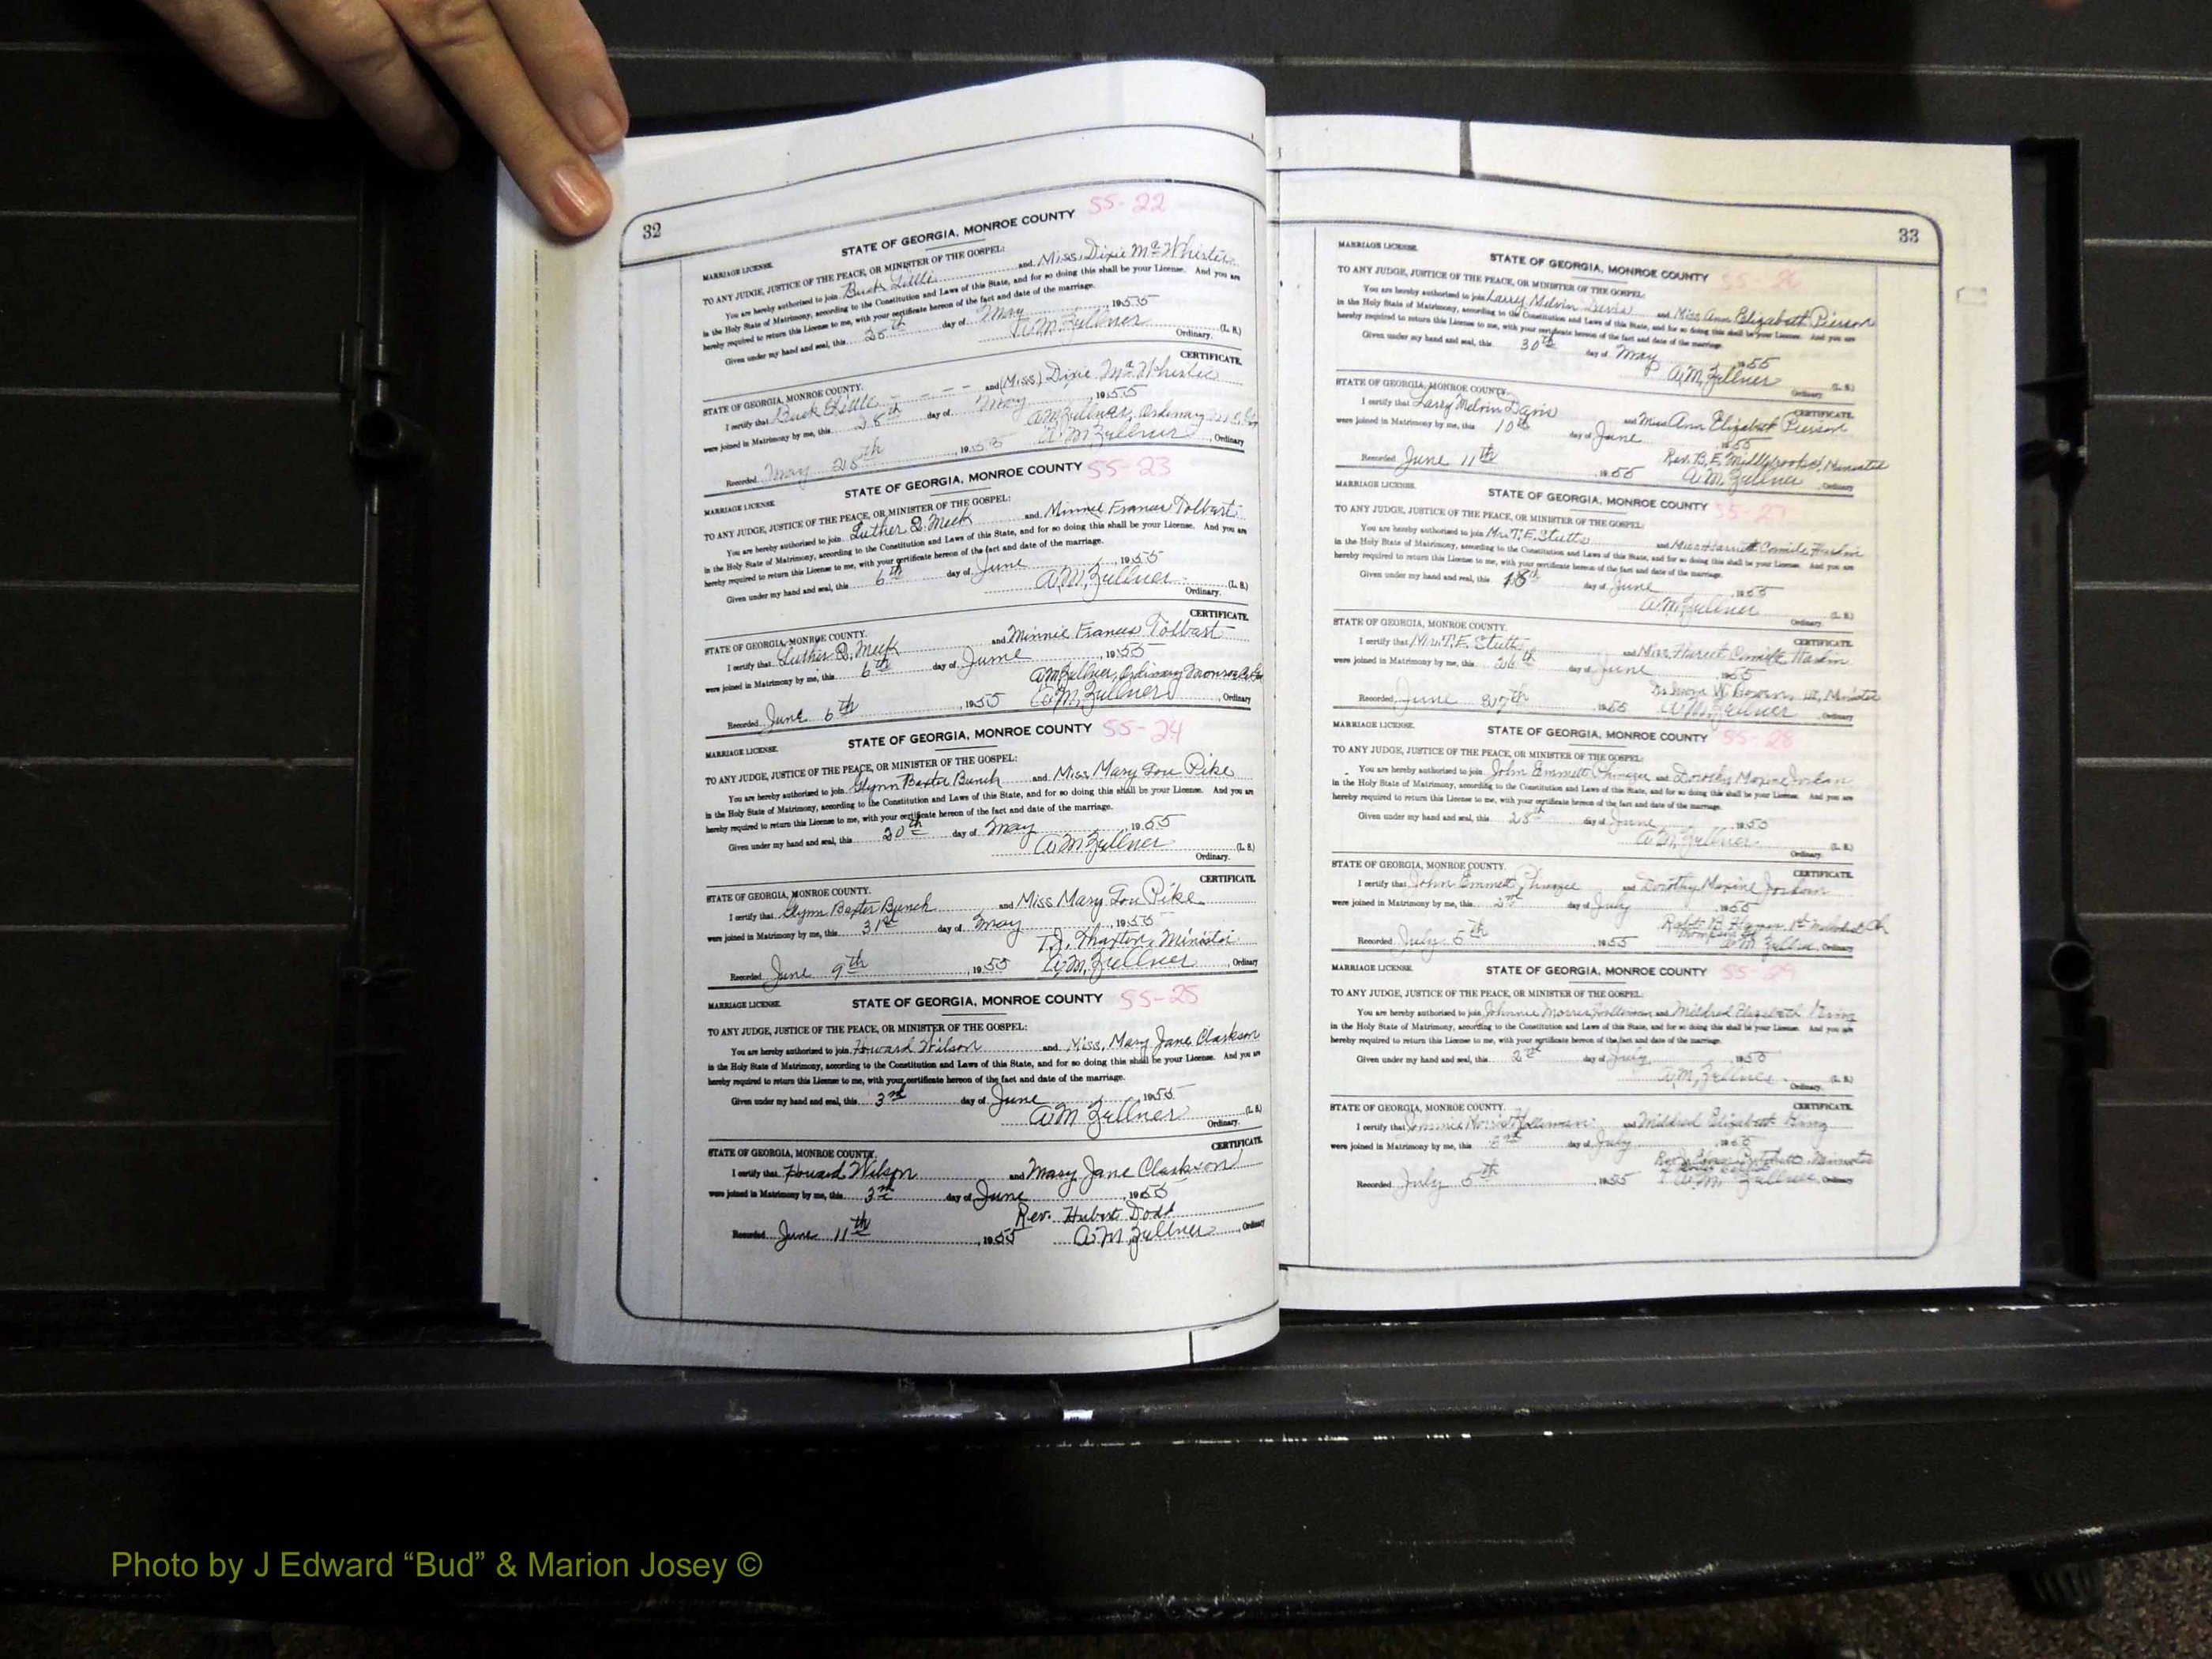 32
STATE OF GEORGIA, MONROE COUNTY 55-22
MARRIAGE LICENSE.
TO ANY JUDGE, JUSTICE OF THE PEACE, OR MINISTER OF THE GOSPEL:
You are hereby authorized to join Buck Little and Miss Dixie McWhister
in the Holy State of Matrimony, according to the Constitution and Laws of this State, and for so doing this shall be your License. And you are
hereby required to return this License to me, with your certificate hereon of the fact and date of the marriage.
Given under my hand and seal, this 28th day of May, 1955
A.M. Zellner (L. S.)
Ordinary.
CERTIFICATE.
STATE OF GEORGIA, MONROE COUNTY.
I certify that Buck Little and (Miss) Dixie McWhister
were joined in Matrimony by me, this 28th day of May 1955
A.M. Zellner, Ordinary
Recorded May 28th, 1955 A.M. Zellner, Ordinary
STATE OF GEORGIA, MONROE COUNTY 55-23
MARRIAGE LICENSE.
TO ANY JUDGE, JUSTICE OF THE PEACE, OR MINISTER OF THE GOSPEL:
You are hereby authorized to join Luther Q. Meek and Minnie Frances Tolbart
in the Holy State of Matrimony, according to the Constitution and Laws of this State, and for so doing this shall be your License. And you are
hereby required to return this License to me, with your certificate hereon of the fact and date of the marriage.
Given under my hand and seal, this 6th day of June, 1955
A.M. Zellner (L. S.)
Ordinary.
CERTIFICATE.
STATE OF GEORGIA, MONROE COUNTY.
I certify that Luther Q. Meek and Minnie Frances Tolbart
were joined in Matrimony by me, this 6th day of June, 1955
A.M. Zellner, Ordinary Monroe Co. Ga
Recorded June 6th, 1955 A.M. Zellner, Ordinary
STATE OF GEORGIA, MONROE COUNTY 55-24
MARRIAGE LICENSE.
TO ANY JUDGE, JUSTICE OF THE PEACE, OR MINISTER OF THE GOSPEL:
You are hereby authorized to join Glynn Baxter Bunch and Miss Mary Lou Pike
in the Holy State of Matrimony, according to the Constitution and Laws of this State, and for so doing this shall be your License. And you are
hereby required to return this License to me, with your certificate hereon of the fact and date of the marriage.
Given under my hand and seal, this 20th day of May, 1955
A.M. Zellner (L. S.)
Ordinary.
CERTIFICATE.
STATE OF GEORGIA, MONROE COUNTY.
I certify that Glynn Baxter Bunch and Miss Mary Lou Pike
were joined in Matrimony by me, this 31st day of May, 1955
T.J. Thaxton, Minister
Recorded June 9th, 1955 A.M. Zellner, Ordinary
STATE OF GEORGIA, MONROE COUNTY 55-25
MARRIAGE LICENSE.
TO ANY JUDGE, JUSTICE OF THE PEACE, OR MINISTER OF THE GOSPEL:
You are hereby authorized to join Howard Wilson and Miss, Mary Jane Clarkson
in the Holy State of Matrimony, according to the Constitution and Laws of this State, and for so doing this shall be your License. And you are
hereby required to return this License to me, with your certificate hereon of the fact and date of the marriage.
Given under my hand and seal, this 3rd day of June, 1955
A.M. Zellner (L. S.)
Ordinary.
CERTIFICATE.
STATE OF GEORGIA, MONROE COUNTY.
I certify that Howard Wilson and Mary Jane Clarkson
were joined in Matrimony by me, this 3rd day of June, 1955
Rev. Hubert Dodd
Recorded June 11th, 1955 A.M. Zellner, Ordinary
33
MARRIAGE LICENSE.
STATE OF GEORGIA, MONROE COUNTY 55-26
TO ANY JUDGE, JUSTICE OF THE PEACE, OR MINISTER OF THE GOSPEL:
You are hereby authorized to join Larry Melvin Davis and Miss Ann Elizabeth Pierson
in the Holy State of Matrimony, according to the Constitution and Laws of this State, and for so doing this shall be your License. And you are
hereby required to return this License to me, with your certificate hereon of the fact and date of the marriage.
Given under my hand and seal, this 30th day of May 1955
A.M. Zellner (L. S.)
Ordinary.
STATE OF GEORGIA, MONROE COUNTY. CERTIFICATE.
I certify that Larry Melvin Davis and Miss Ann Elizabeth Pierson
were joined in Matrimony by me, this 10th day of June 1955
Rev. B.E. Middlebrooks, Minister
Recorded June 11th 1955 A.M. Zellner, Ordinary
MARRIAGE LICENSE.
STATE OF GEORGIA, MONROE COUNTY 55-27
TO ANY JUDGE, JUSTICE OF THE PEACE, OR MINISTER OF THE GOSPEL:
You are hereby authorized to join Mr. T.E. Stutts and Miss Harriett
in the Holy State of Matrimony, according to the Constitution and Laws of this State, and for so doing this shall be your License. And you are
hereby required to return this License to me, with your certificate hereon of the fact and date of the marriage.
Given under my hand and seal, this 18th day of June, 1955
A.M. Zellner (L. S.)
Ordinary.
STATE OF GEORGIA, MONROE COUNTY. CERTIFICATE.
I certify that Mr. T.E. Stutts and Miss
were joined in Matrimony by me, this 26th day of June 1955
Minister
Recorded June 27th 1955 A.M. Zellner, Ordinary
MARRIAGE LICENSE.
STATE OF GEORGIA, MONROE COUNTY 55-28
TO ANY JUDGE, JUSTICE OF THE PEACE, OR MINISTER OF THE GOSPEL:
You are hereby authorized to join John Emmett and Dorothy Maxine Jordan
in the Holy State of Matrimony, according to the Constitution and Laws of this State, and for so doing this shall be your License. And you are
hereby required to return this License to me, with your certificate hereon of the fact and date of the marriage.
Given under my hand and seal, this 28th day of June 1955
A.M. Zellner (L. S.)
Ordinary.
STATE OF GEORGIA, MONROE COUNTY. CERTIFICATE.
I certify that John Emmett and Dorothy Maxine Jordan
were joined in Matrimony by me, this 2nd day of July 1955
Recorded July 5th 1955 A.M. Zellner, Ordinary
MARRIAGE LICENSE.
STATE OF GEORGIA, MONROE COUNTY 55-29
TO ANY JUDGE, JUSTICE OF THE PEACE, OR MINISTER OF THE GOSPEL:
You are hereby authorized to join Johnnie Morris Holloman and Mildred Elizabeth King
in the Holy State of Matrimony, according to the Constitution and Laws of this State, and for so doing this shall be your License. And you are
hereby required to return this License to me, with your certificate hereon of the fact and date of the marriage.
Given under my hand and seal, this 2nd day of July, 1955
A.M. Zellner (L. S.)
Ordinary.
STATE OF GEORGIA, MONROE COUNTY. CERTIFICATE.
I certify that Johnnie Morris Holloman and Mildred Elizabeth King
were joined in Matrimony by me, this day of July 1955
Minister
Recorded July 5th 1955 A.M. Zellner, Ordinary
Photo by J Edward “Bud” & Marion Josey ©